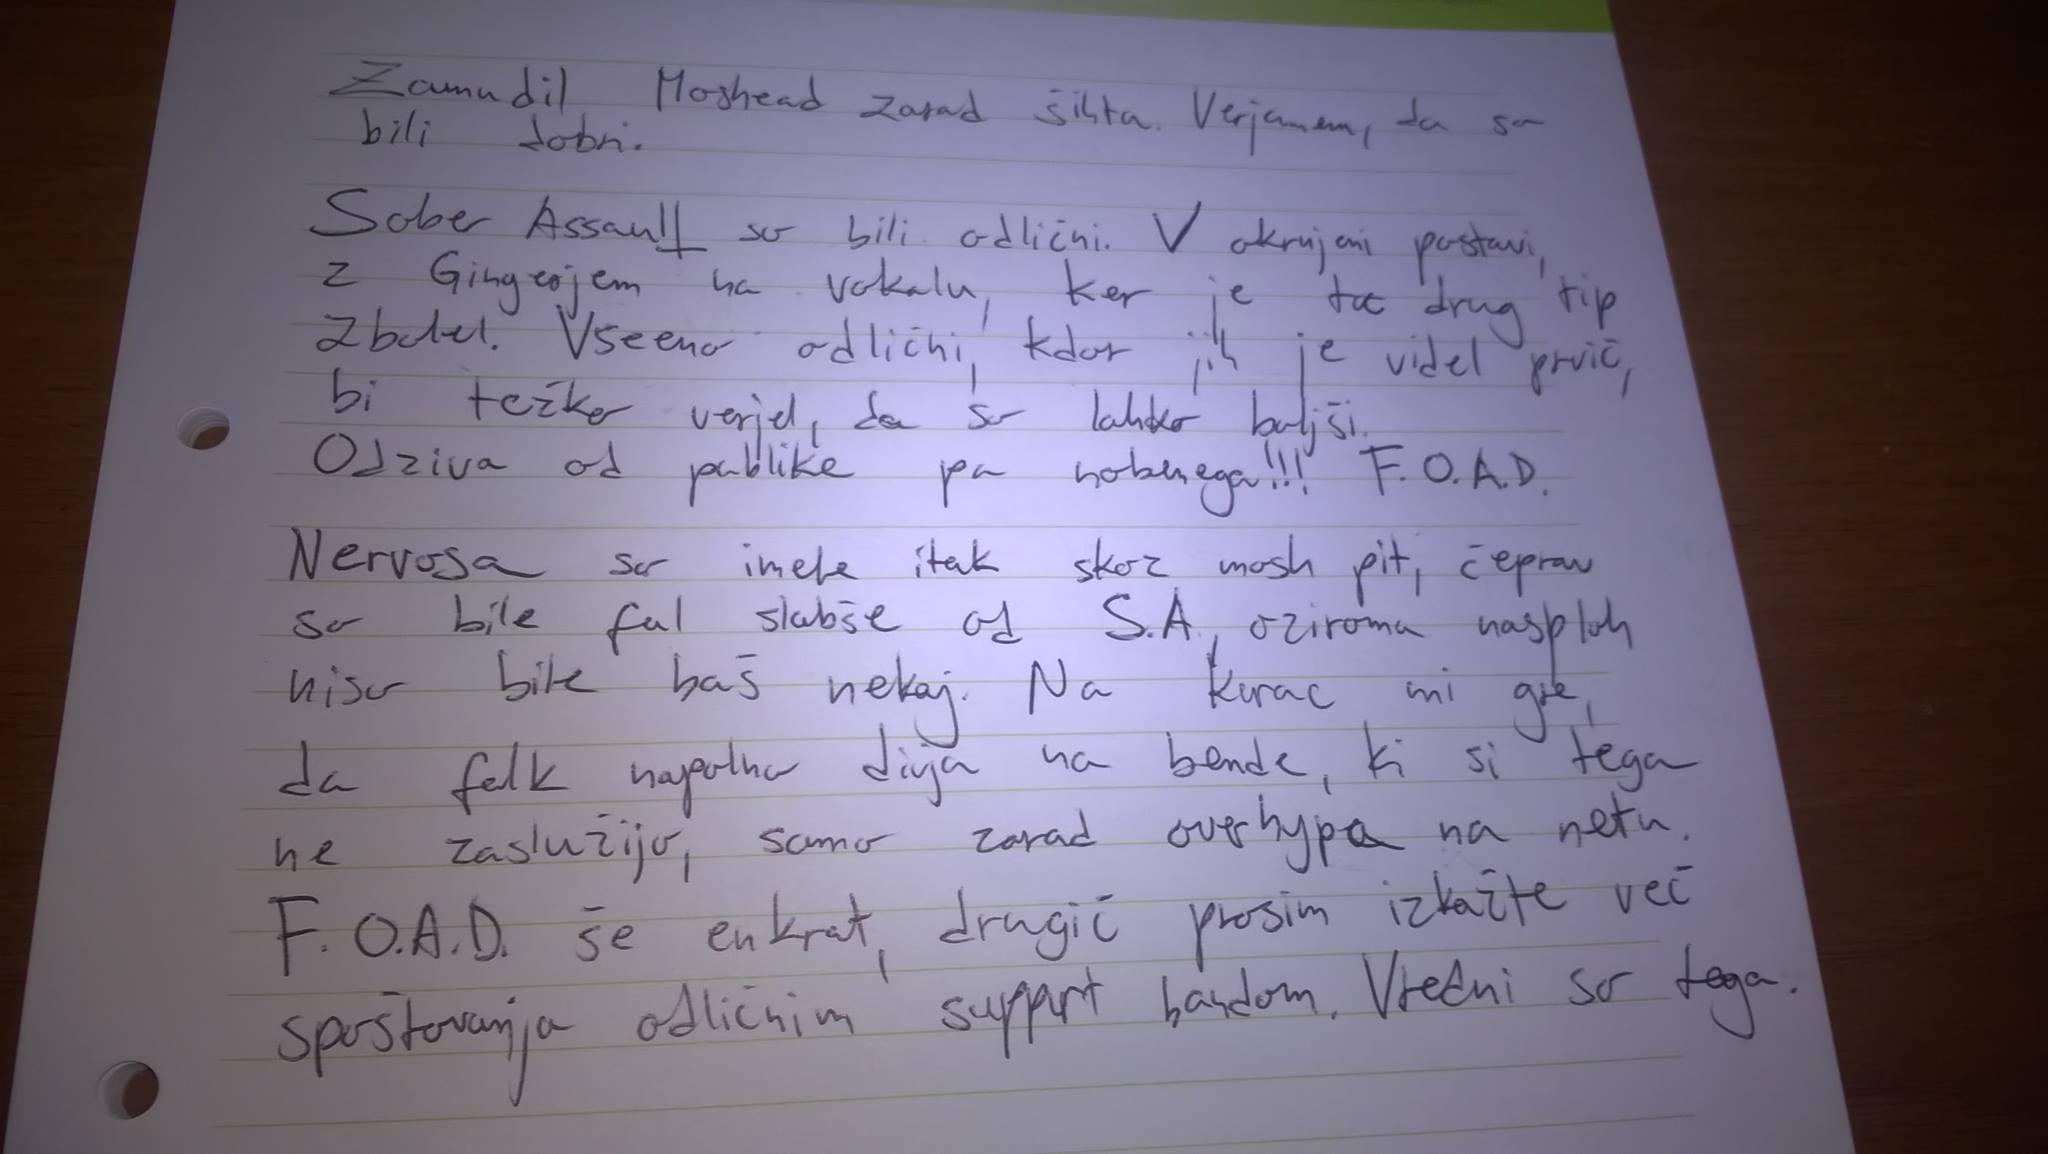 Zamudil Moshead zarad šihta. Verjamem, da so
bili dobri.
Sober Assault so bili odlični. V okrnjeni postavi,
z Gingerjem na vokalu, ker je ta drug tip
zbolel. Vseeno odlični, kdor jih je videl prvič,
bi težko verjel, da so lahko boljši.
Odziva od publike pa nobenega!!! F.O.A.D.
Nervosa so imele itak skoz mosh pit, čeprav
so bile ful slabše od S.A., oziroma nasploh
niso bile baš nekaj. Na kurac mi gre,
da folk napolno divja na bende, ki si tega
ne zaslužijo, samo zarad overhypa na netu.
F.O.A.D. še enkrat, drugič prosim izkažte več
spoštovanja odličnim support bandom. Vredni so tega.